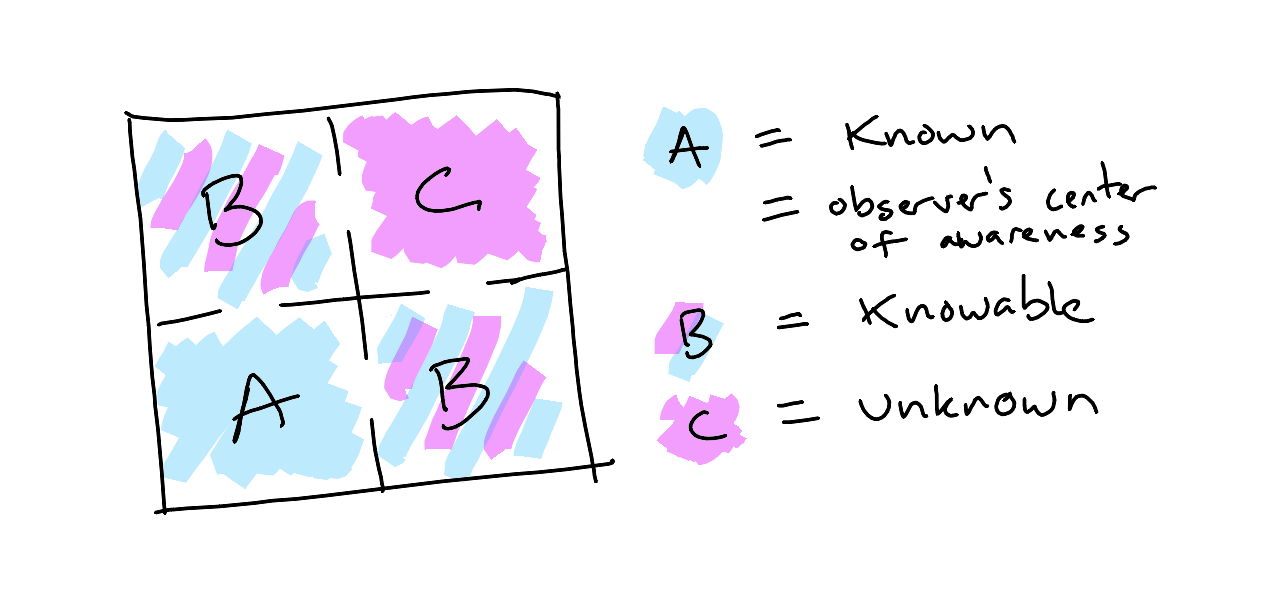 B C
A B
A = Known
= observer's center
of awareness
B = Knowable
C = Unknown